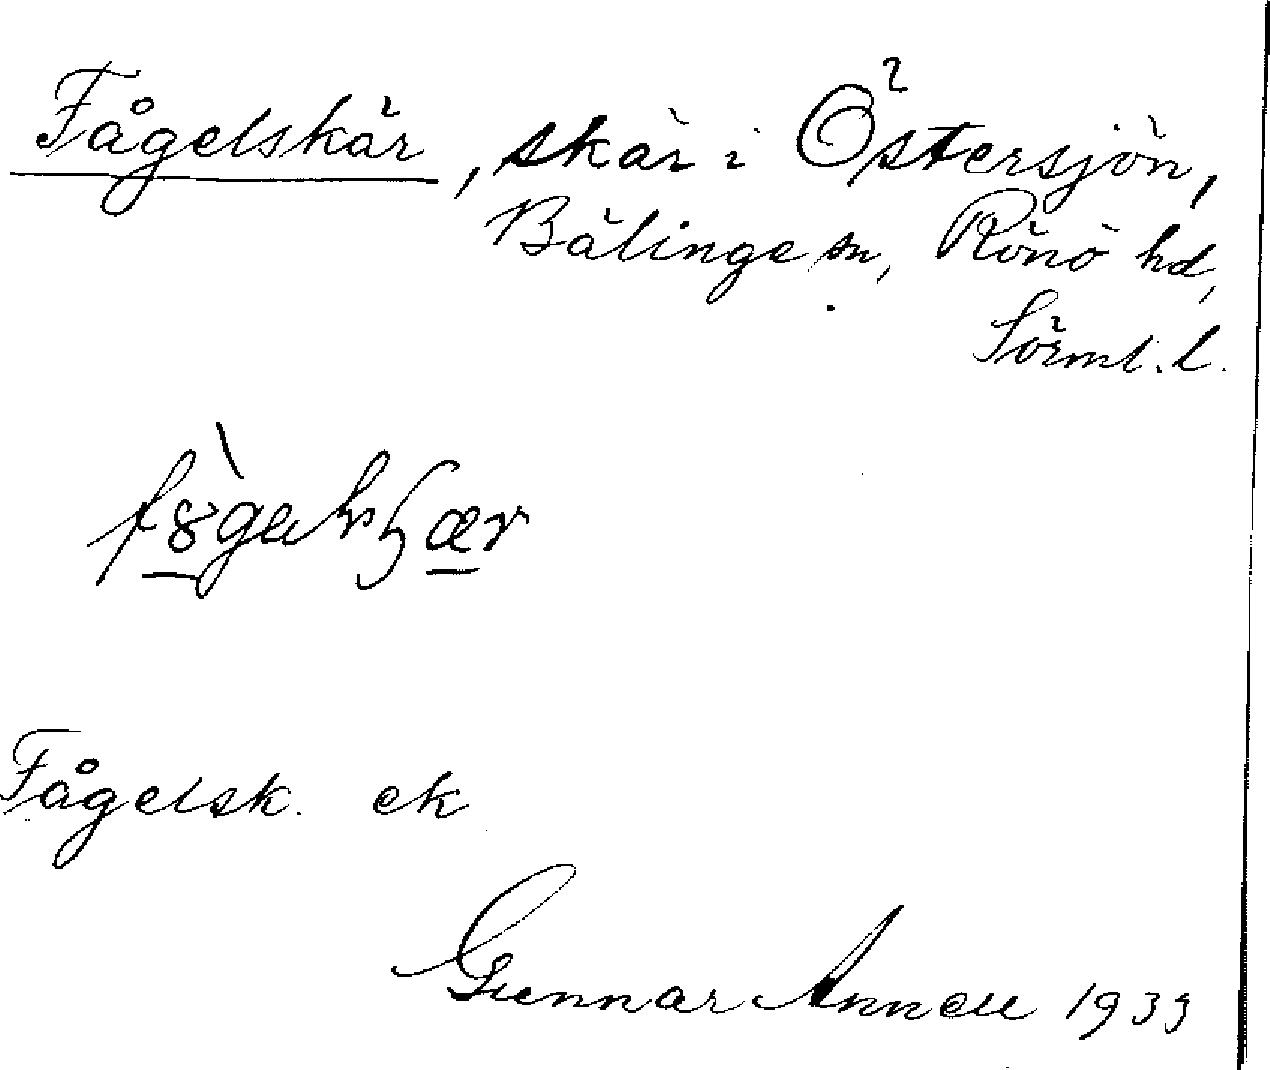 Fågelskär, skär i Östersjön,
Bälinge sn, Rönö hd,
Sörml. l.
Fågelsk. ek
Gunnar Annell 1933